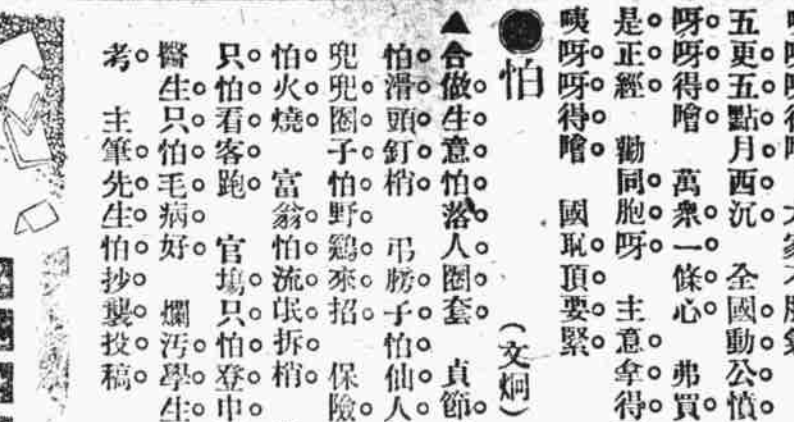 五更五點月西沉 全國動公憤
呀呀得噲 萬衆一條心 弗買
是正經 勸同胞呀 主意拿得
咦呀呀得噲 國恥頂要緊
●怕 (文炯)
▲合做生意怕落人圈套 貞節
怕滑頭釘梢 弔膀子怕仙人
兜兜圈子怕野鷄來招 保險
怕火燒 富翁怕流氓拆梢
只怕看客跑 官塲只怕登申
醫生只怕毛病好 爛汚學生
考 主筆先生怕抄襲投稿